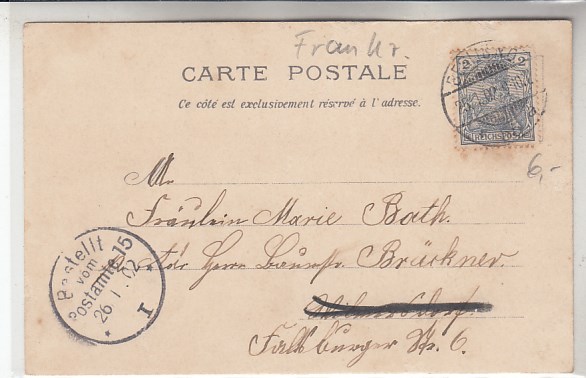 Frankr.
CARTE POSTALE
Ce côté est exclusivement réservé à l'adresse.
2 2
REICHSPOST
6,-
Fräulein Marie Bath.
Adr. Herrn Baumstr. Brückner.
Wilmersdorf.
Falsburger Str. 6.
Bestellt
vom
Postamte 15
26. 1. 02
* I